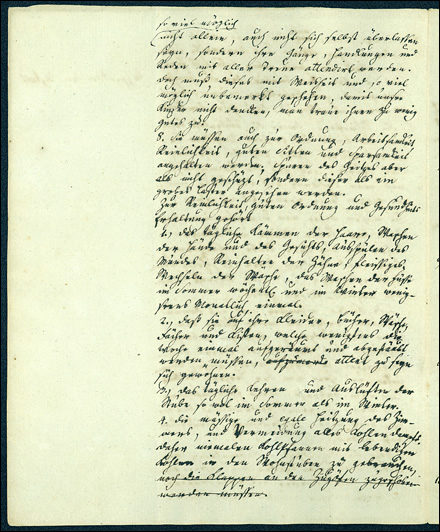 so viel möglich
nicht allein, auch nicht sich selbst überlassen
seyn, sondern ihr Gang, Handlungen und
Reden mit aller Treue attendirt werden.
doch muß dieses mit Weisheit und so viel
möglich unbemerkt geschehen, damit unsre
Kinder nicht denken, man traue ihnen zu wenig
Gutes zu.
8. Sie müssen auch zur Ordnung, Arbeitsamkeit
Reinlichkeit, guten Sitten und Sparsamkeit
angehalten werden, des Geitzes aber
als nicht, sondern dieser als ein
grobes Laster angesehen werden.
Zur Reinlichkeit, guten Ordnung und Gesundheits
Erhaltung gehört
1., das tägliche Kämmen der Haare, Waschen
der Hände und des Gesichts, Ausspülen des
Mundes, Reinhalten der Zähne, fleißiges
Wechseln der Wäsche, das Waschen der Füße
im Sommer wöchentl. und im Winter wenig-
stens Monatlich einmal.
2., daß sie auf ihre Kleider, Bücher, Wäsche
Fächer und Kisten, welche wenigstens alle
Woche einmal aufgeräumt und abgestäubt
werden müssen, acht zu geben
sich gewöhnen.
3., das tägliche Kehren und Auslüften der
Stube so wol im Sommer als im Winter.
4. die mäßige und egale Heitzung des Zim-
mers, und Vermeidung alles Kohlendampfs,
daher niemalen Kohlpfannen mit lebendigen
Kohlen in den Wohnstuben zu gebrauchen,
noch die Klappen an den Zugöfen zugeschoben
werden müssen.